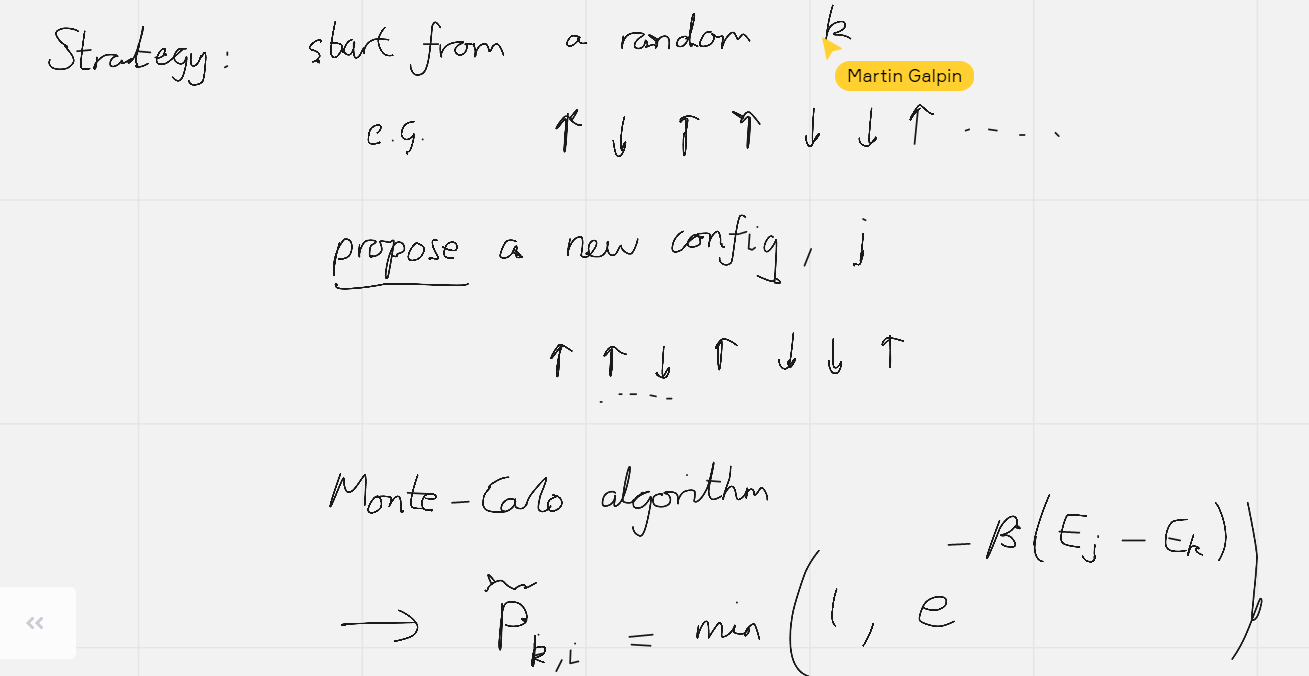 Strategy: start from a random k
Martin Galpin
e.g. ↑ ↓ ↑ ↑ ↓ ↓ ↑ - - - -
propose a new config, j
↑ ↑ ↓ ↑ ↓ ↓ ↑
Monte-Calo algorithm
→ P̃_{k,i} = min(1, e^{-β(E_j - E_k)})